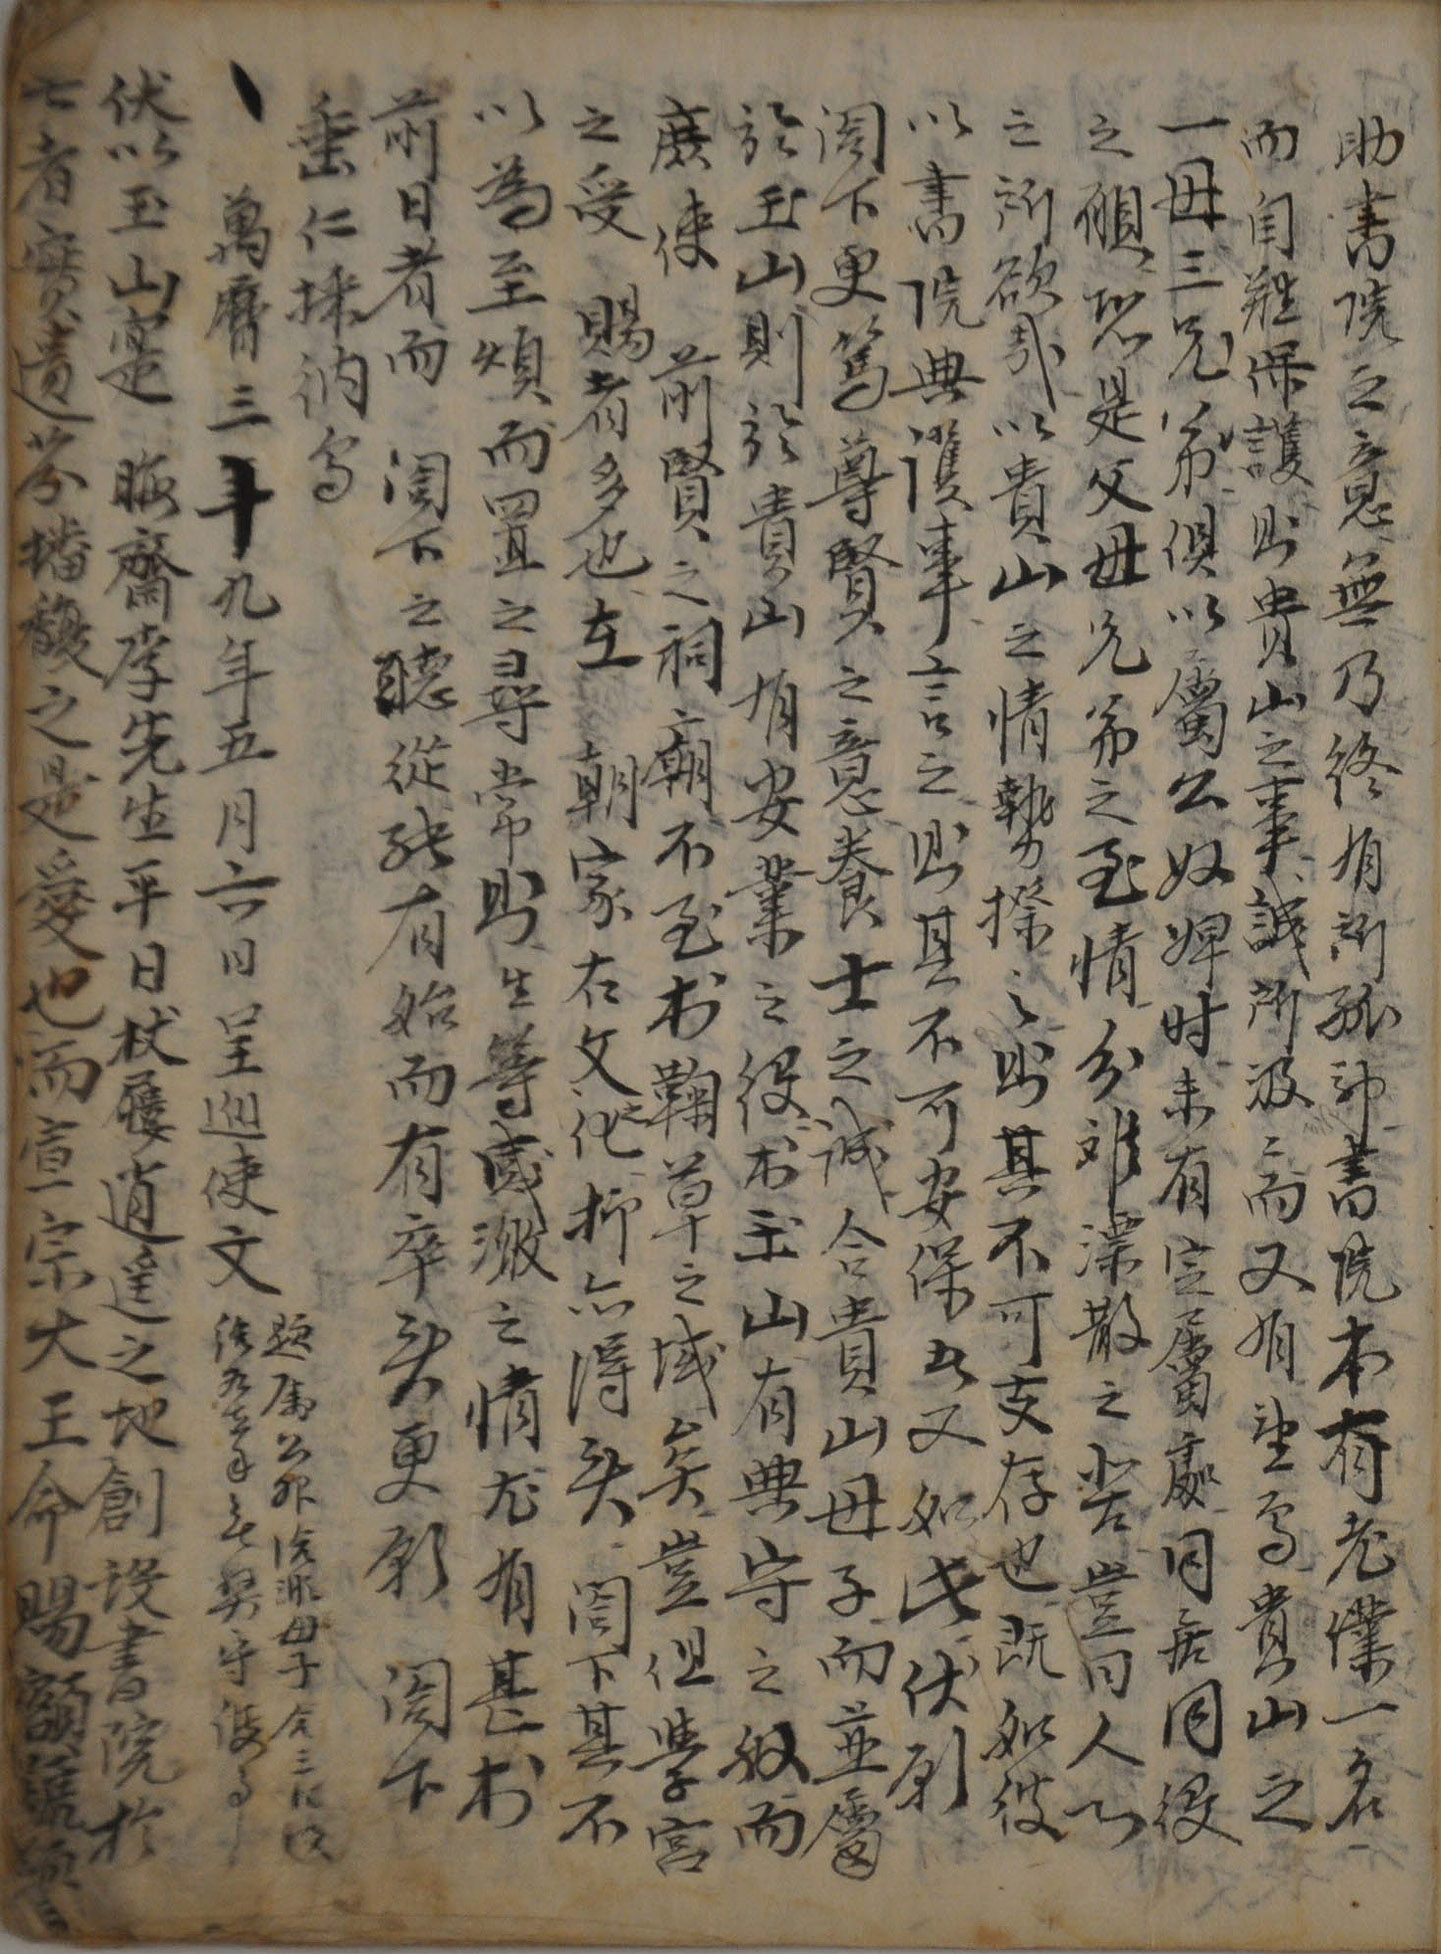 助書院之意無乃終有所孤耶書院本有老僕一名
而自難保護則貴山之事誠所汲汲而又有望焉貴山之
一母三兄弟俱以屬公奴婢時未有定屬處同居同役
之願恐是父母兄弟之至情分難漂散之苦豈曰人人
之所欲哉以貴山之情勢揆之則其不可支存也旣如彼
以書院典護事言之則其不可安保者又如此伏願
閤下更篤尊賢之意養士之誠合貴山母子而並屬
於玉山則於貴山有安業之役於玉山有典守之奴而
庶使 前賢之祠廟不至於鞠草之域矣豈但學宮
之受 賜者多也在 朝家右文之化抑亦得矣 閤下其不
以爲至煩而置之尋常則生等感激之情尤有甚於
前日者而 閤下之聽從能有始而有卒矣更願 閤下
垂仁採納焉
萬曆三十九年五月六日呈巡使文
題屬公婢 母子合三口
守護事
伏以玉山寔 晦齋李先生平日杖屨逍遙之地創設書院於
者實遺芬播馥之是愛也而宣宗大王命賜額號